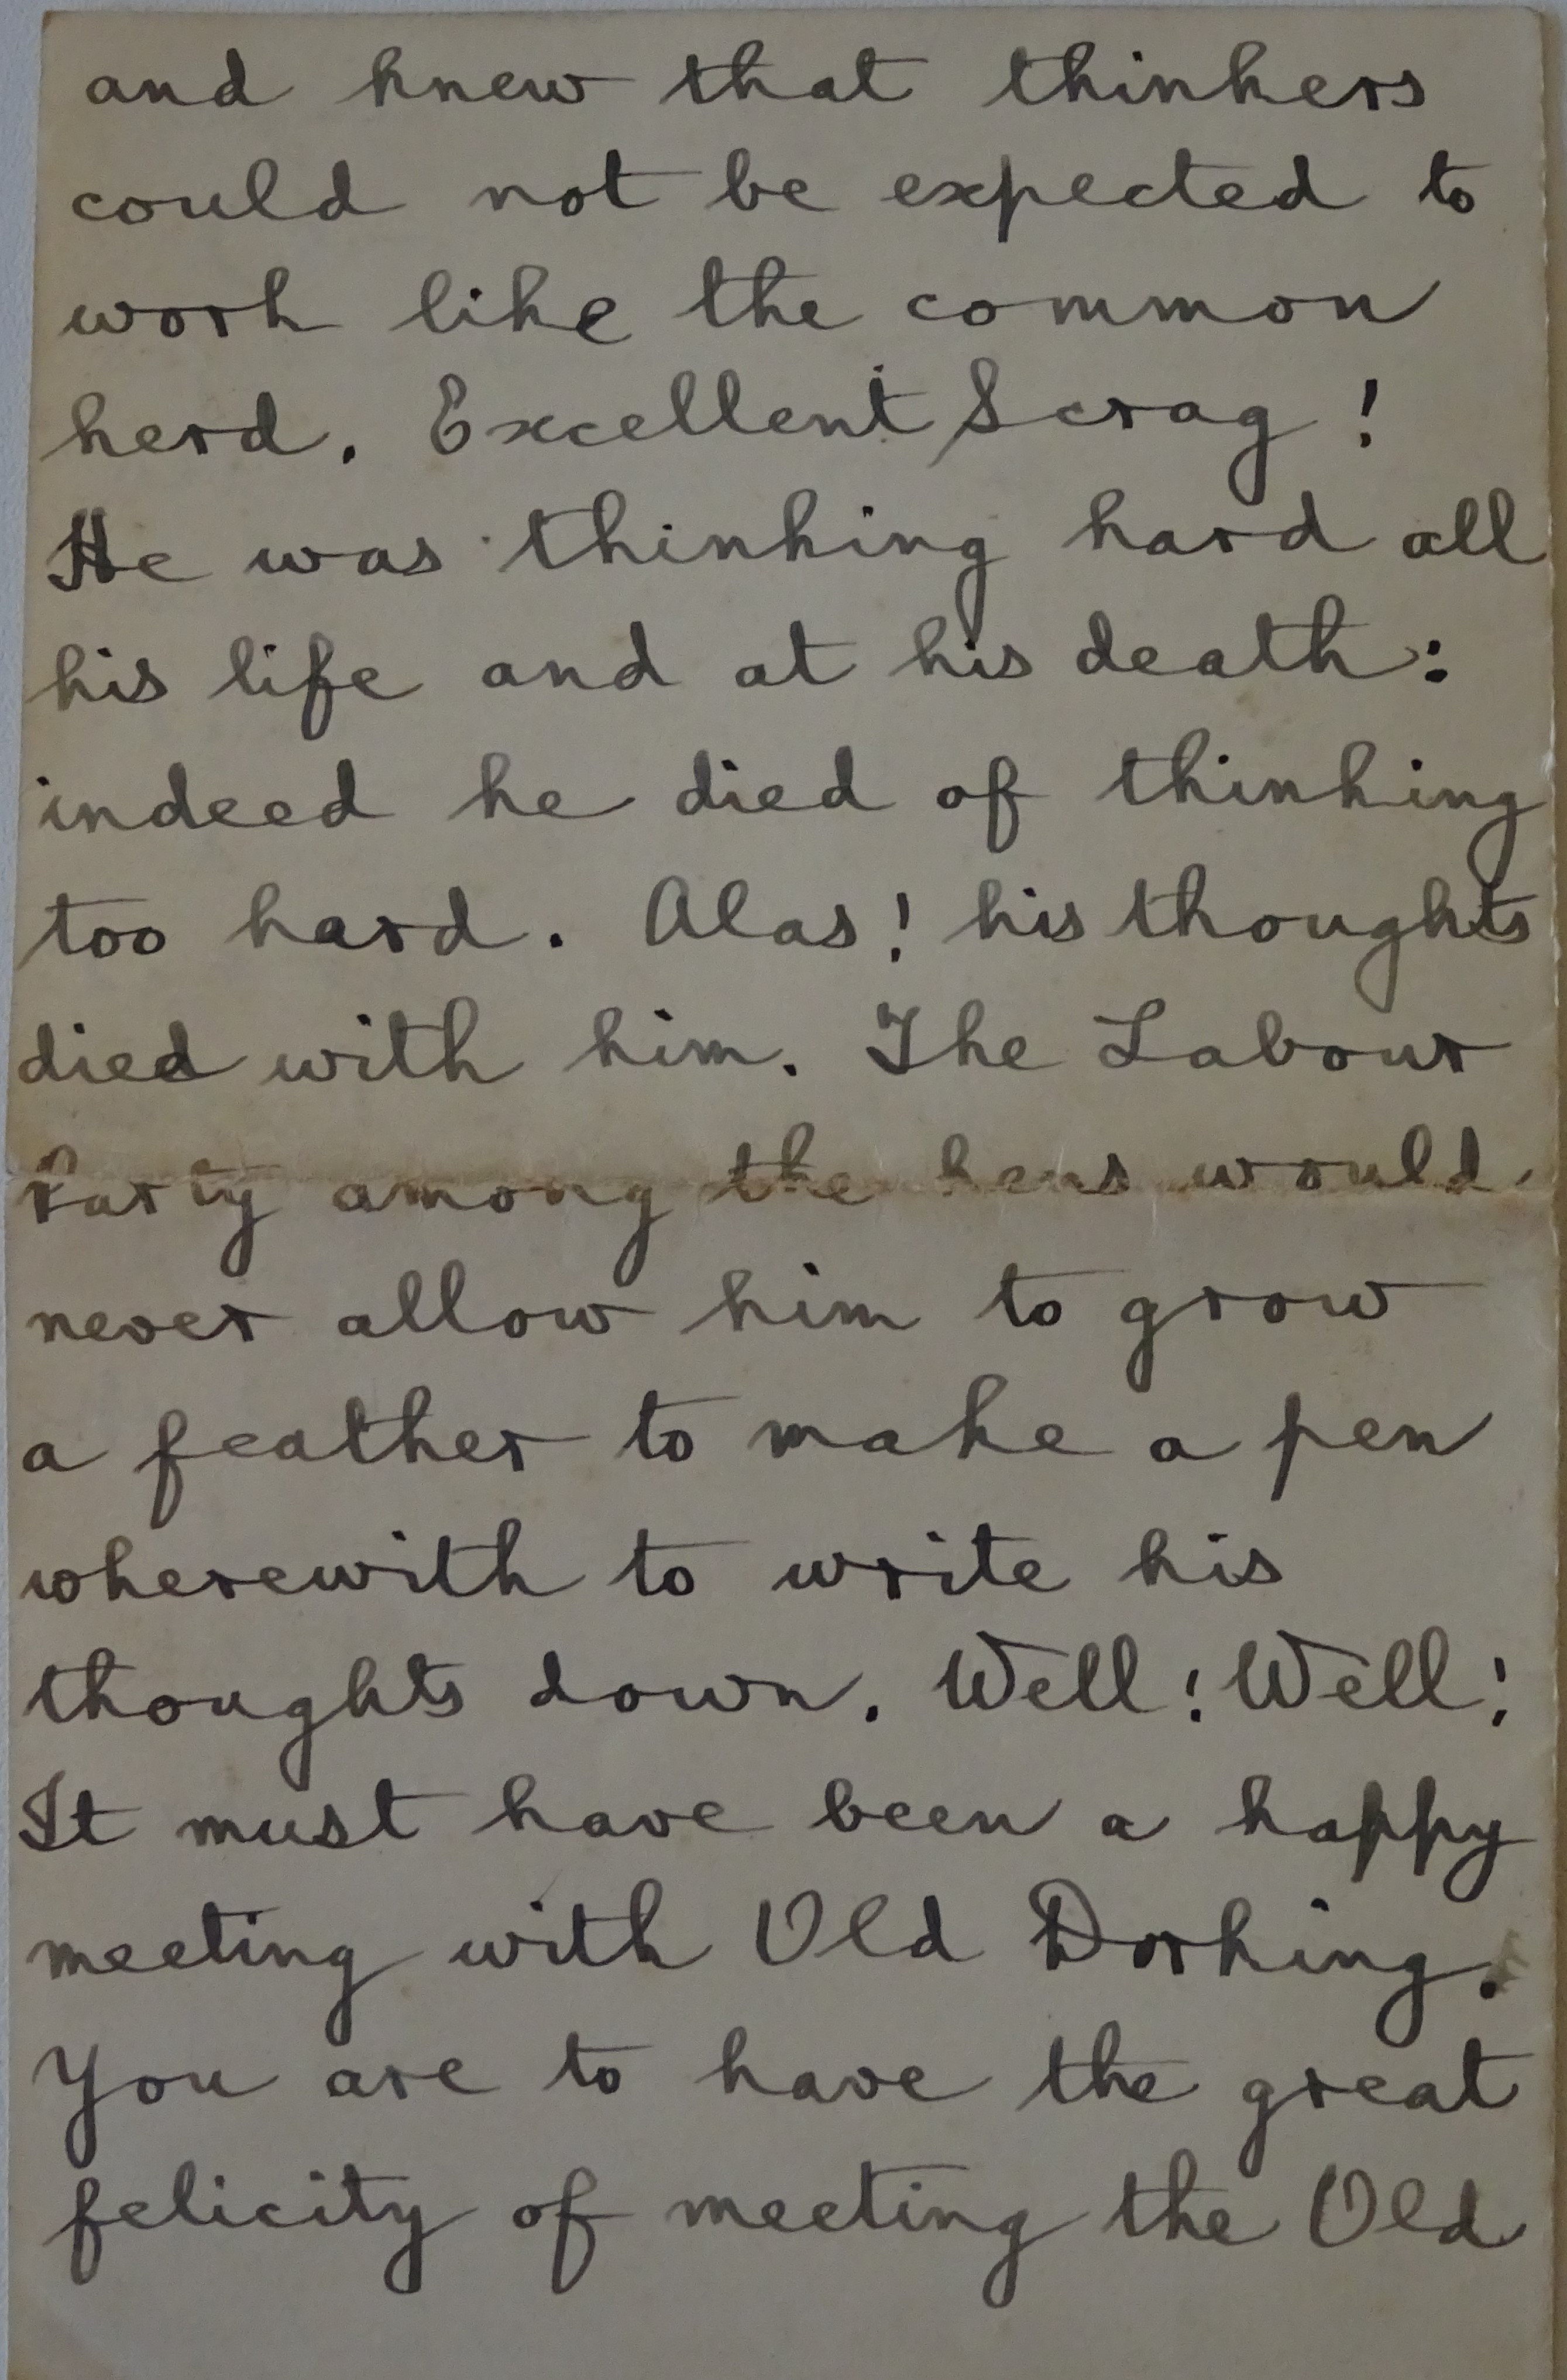 and knew that thinkers
could not be expected to
work like the common
herd. Excellent Scrag!
He was thinking hard all
his life and at his death:
indeed he died of thinking
too hard. Alas! his thoughts
died with him. The Labour
Party among the hens would
never allow him to grow
a feather to make a pen
wherewith to write his
thoughts down. Well! Well!
It must have been a happy
meeting with Old Dorking.
You are to have the great
felicity of meeting the Old